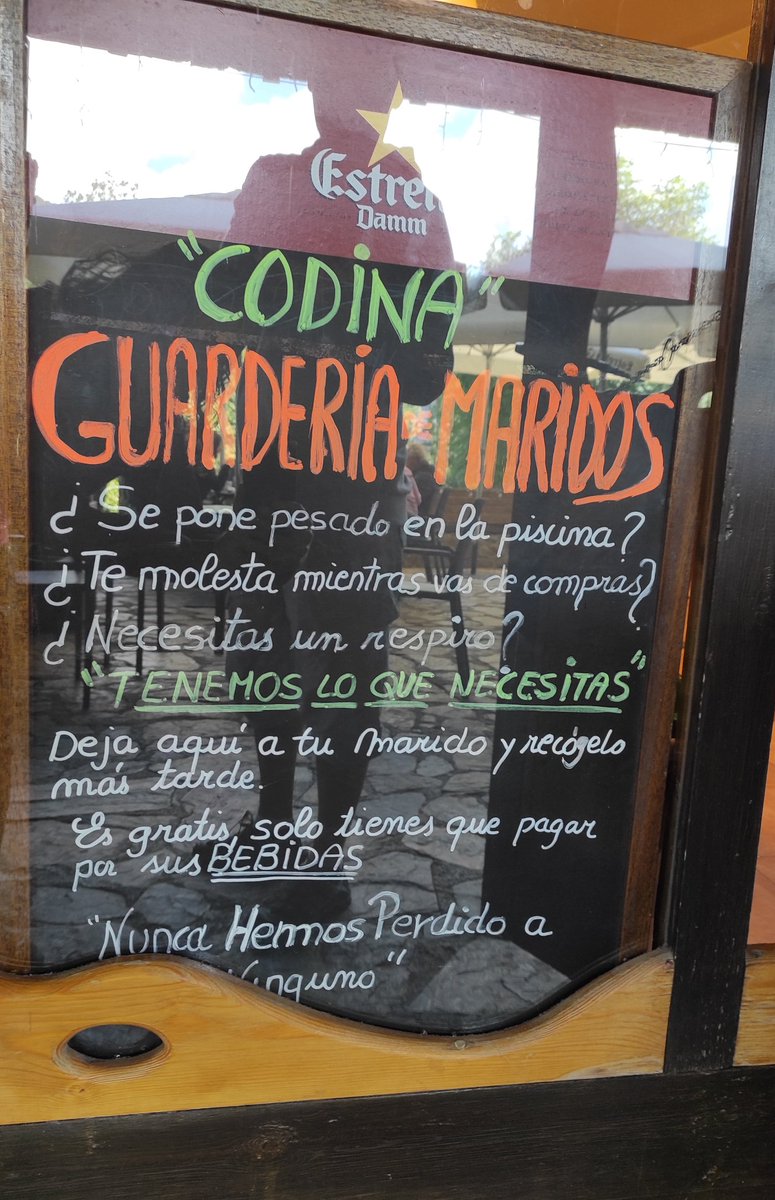 Estrel
Damm
"CODINA"
GUARDERIA-MARIDOS
¿Se pone pesado en la piscina?
¿Te molesta mientras vas de compras?
¿Necesitas un respiro?
"TENEMOS LO QUE NECESITAS"
Deja aquí a tu marido y recógelo
más tarde.
Es gratis, solo tienes que pagar
por sus BEBIDAS
"Nunca Hemos Perdido a
Ninguno"